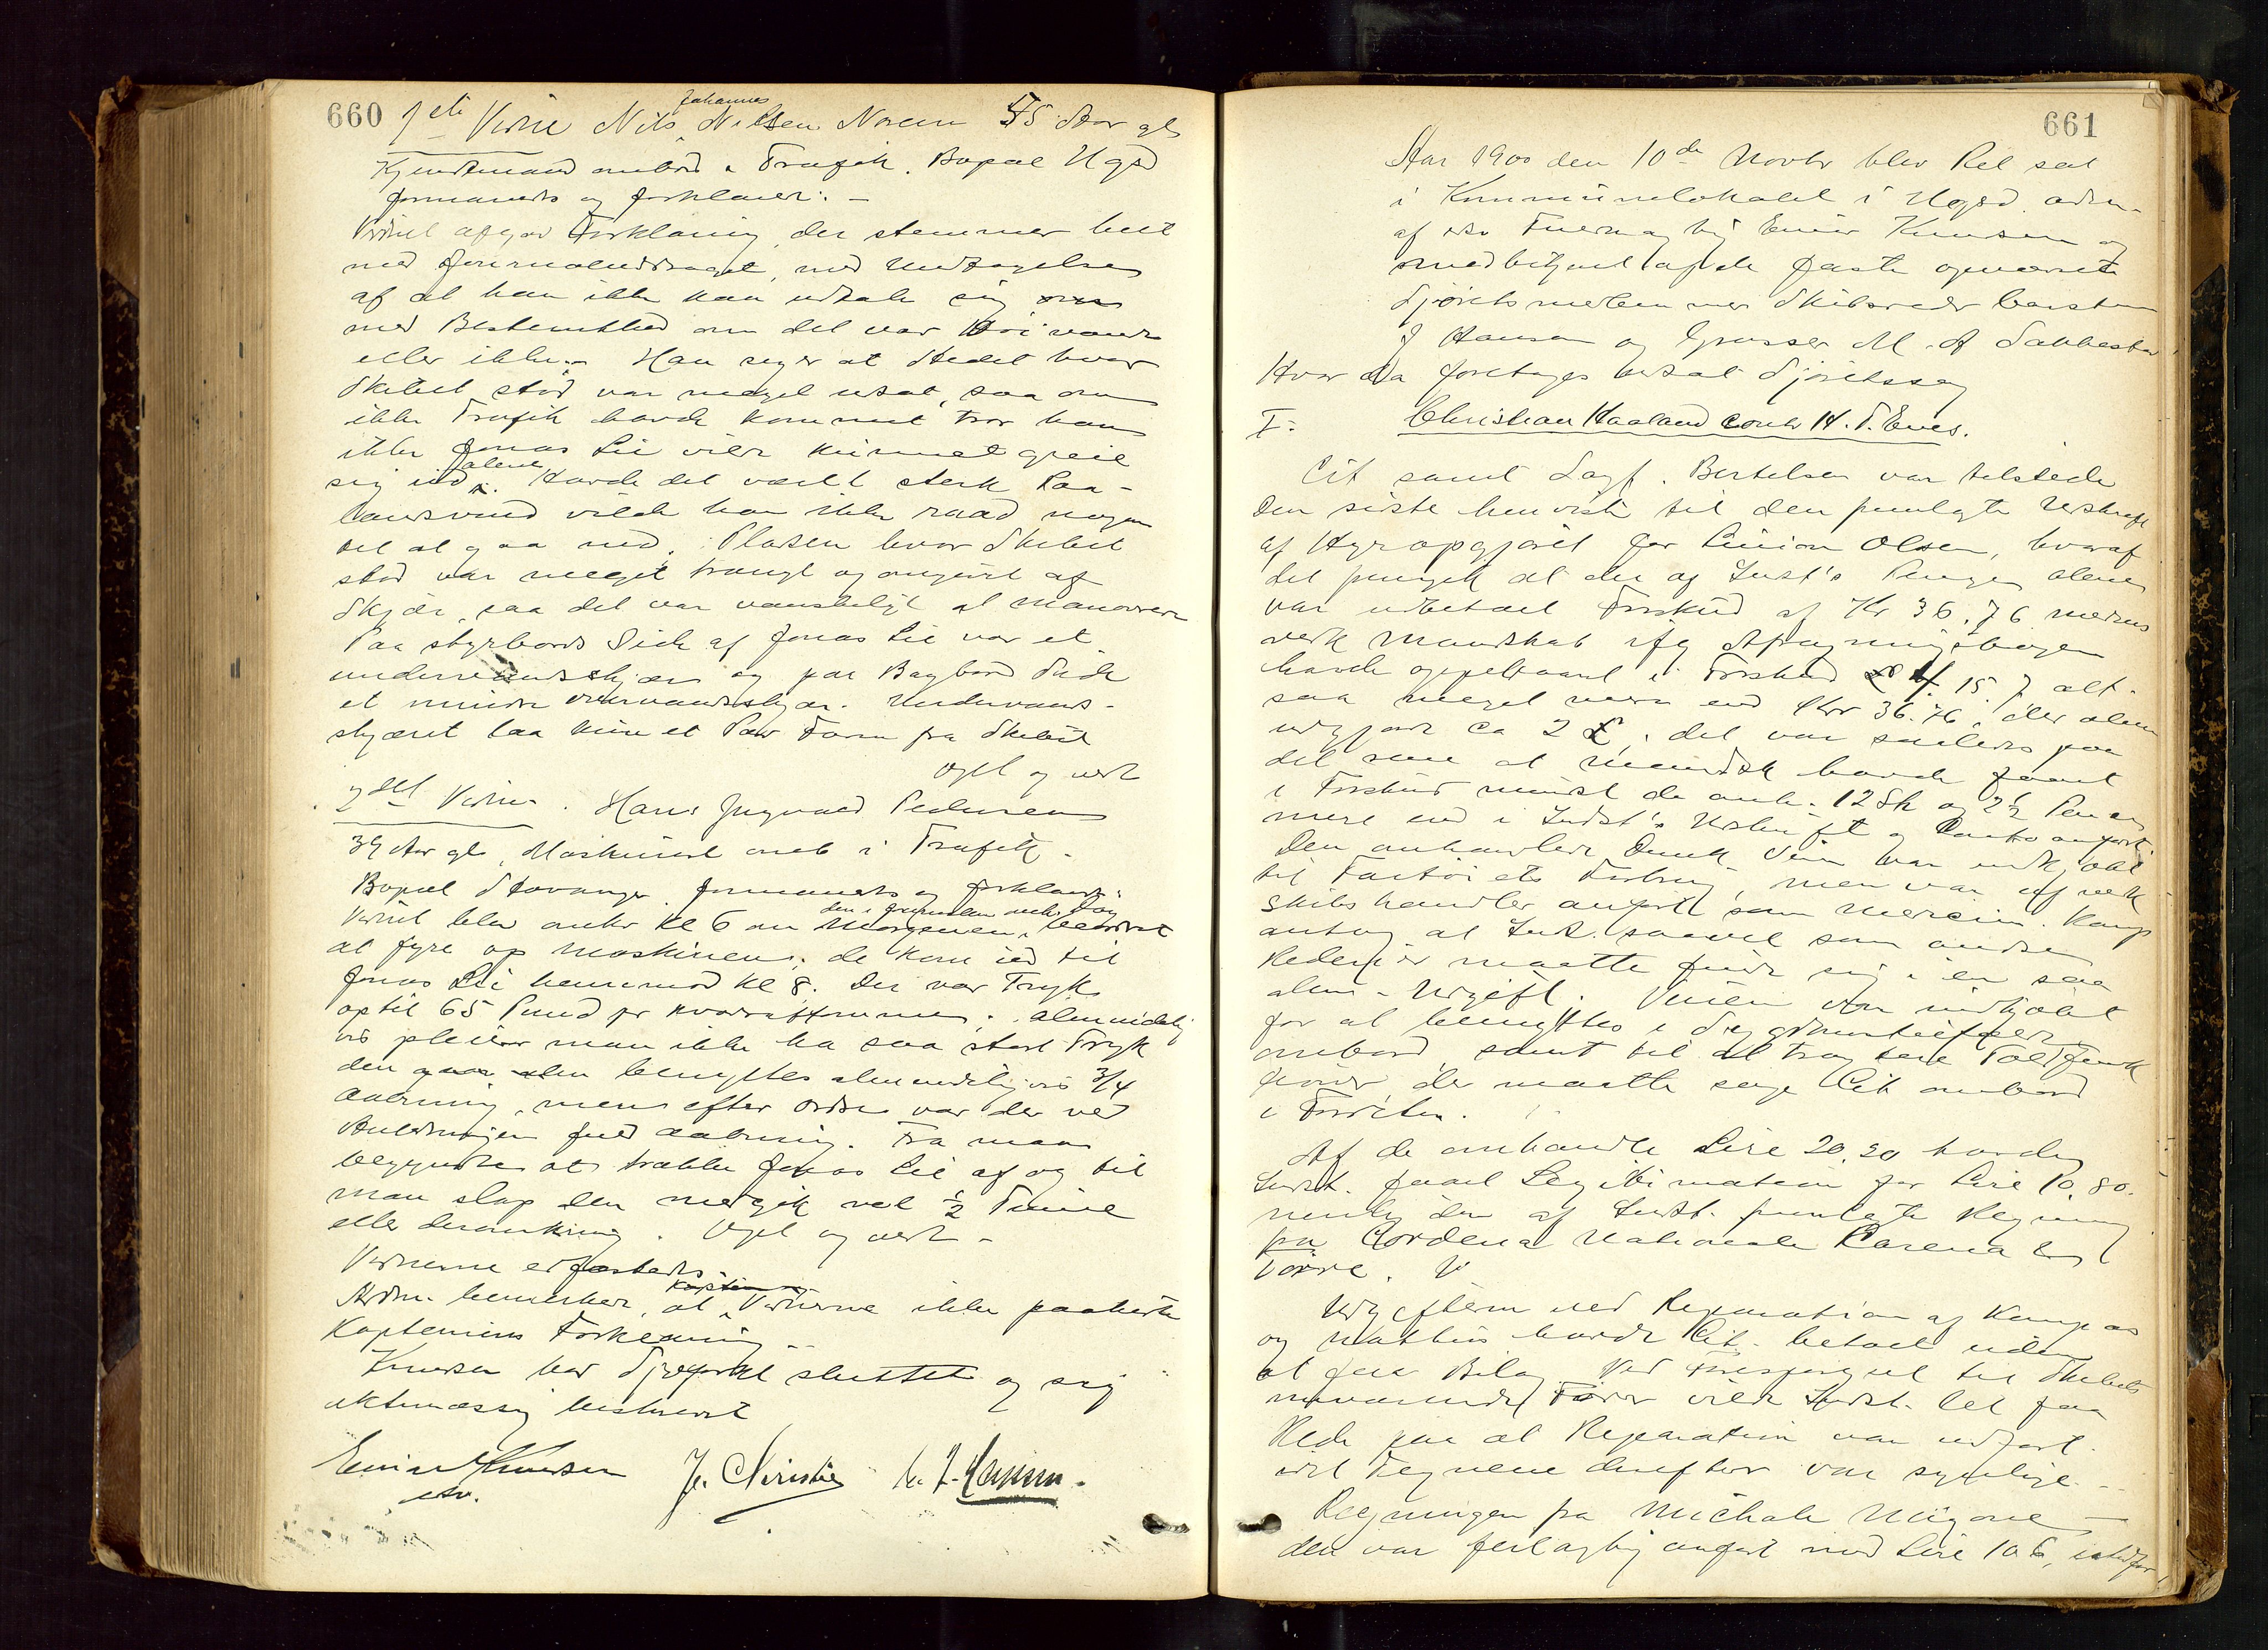 660
1ste Vidne Nils Johannes Nilsen Noren 55 Aar gl
Kjendtmand ombord i Trafik. Bopæl Hgsd
formanedes og forklarer: -
Vidnet afgav Forklaring der stemmer helt
med Journaluddraget, med Undtagelse
af at han ikke kan udtale sig
med Bestemthed om det var Höivande
eller ikke. Han siger at Stedet hvor
Skibet stod var meget udsat, saa om
ikke Trafik havde kommet tror han
ikke Jonas Lie vilde kunnet greie
sig selv alene. Havde det været sterk Paa-
landsvind vilde han ikke raad nogen
til at gaa ned. Pladsen hvor Skibet
stod var meget trangt og omgivet af
Skjær, saa det var vanskeligt at manøvrere
Paa styrbords Side af Jonas Lie var et
undervandsskjær og paa Bagbord Side
et mindre overvandsskjær. Undervands-
skjæret laa kun et Par Favn fra Skibet
Opl og vedt
2det Vidne. Hans Ingvald Pedersen
39 Aar gl, Maskinist omb i Trafik.
Bopæl Stavanger formanedes og forklarer:
Vidnet blev omkr Kl 6 om Morgenen den i Journalen anf. Dag beordret
at fyre op Maskinen; de kom ud til
Jonas Lie henimod Kl 8. Der var Tryk
optil 65 Pund pr kvadrattomme; almindelig
vis pleier man ikke ha saa stort Tryk
den benyttes almindeligvis 3/4
Aabning, men efter Ordre var der ved
Anledningen fuld Aabning. Fra man
begyndte at trække Jonas Lie af og til
man slap den medgik vel 1/2 Time
eller deromkring. Opl og vedt -
Vidnerne edfæstedes.
Adm. bemerker, at Vidnerne ikke paahørte
Kapteinens Forklaring
Knudsen bad Sjøforklar sluttet og sig
aktmæssig beskrevet
Einar Knudsen
J. Christie
C. J. Hansen.
661
Aar 1900 den 10de Novbr blev Ret sat
i Kommunelokalet i Hgsd. adm.
af Einar Knudsen og
med betjent af de faste opnævnte
Sjøretsmedlemmer Skibsreder Carsten
J Hansen og Grosser M. A Sakkestad
Hvor da foretoges udsat Sjøretssag
I. Christian Haaland contr H. S. Enes.
Cit samt Sagf. Bertelsen var tilstede
Den sidste henviste til den fremlagte Udskrift
af Hyreopgjøret for Simon Olsen, hvoraf
det fremgik at der af Indst's Penge alene
var udbetalt Forskud af Kr 36.76 medens
nævnte Mandskab ifg Afregningsbogen
havde oppebaaret i Forskud £ 4. 15. 7. alt-
saa meget mere end Kr 36.76, der alene
udgjorde ca 2 £; det var saaledes paa
det rene at Mandsk havde faaet
i Forskud mindst de anh. 12 Sh og 2 1/2 Pence
mere end i Indst's Udskrift og Conto anført
Den omhandlede Dunk Vin var indkjøbt
til Fartøiets Forbrug, men var af
Skibshandler anført som Medecin. Kapt
antog at Indst. saavel som andre
Rederier maatte finde sig i en saa
alm. Udgift. Vinen var indkjøbt
for at benyttes i Sygdomstilfælde
ombord samt til at traktere Toldfunk
tionær der maatte søge Cit ombord
i Forretn.
Af de omhandl Lire 20.20 havde
Indst. faaet Legitimation for Lire 10.80.
nemlig den af Indst. fremlagte Regning
fra Corderia Nationale
Torre.
Udgifterne ved Reparation af Kompas
og Nathus havde Cit. betalt uden
at faa Bilag. Ved Forespørgsel til Skibets
nuværende Fører vilde Indst. let faa
Rede paa at Reparation var udført.
idet Tegnene derefter var synlige.
Regningen fra Michele Migone -
den var feilagtig anført med Lire 106, istedfor